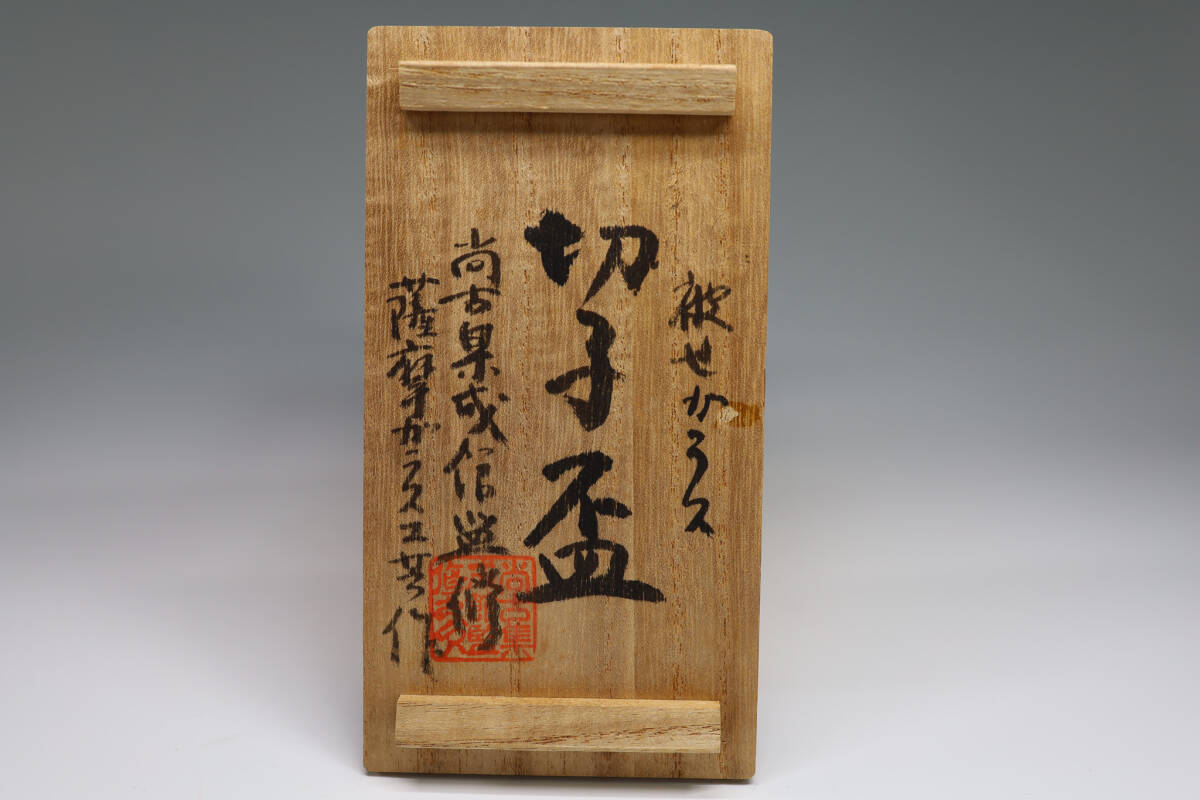 被せガラス
切子盃
尚古集成館監修
薩摩ガラス工芸作
尚古集